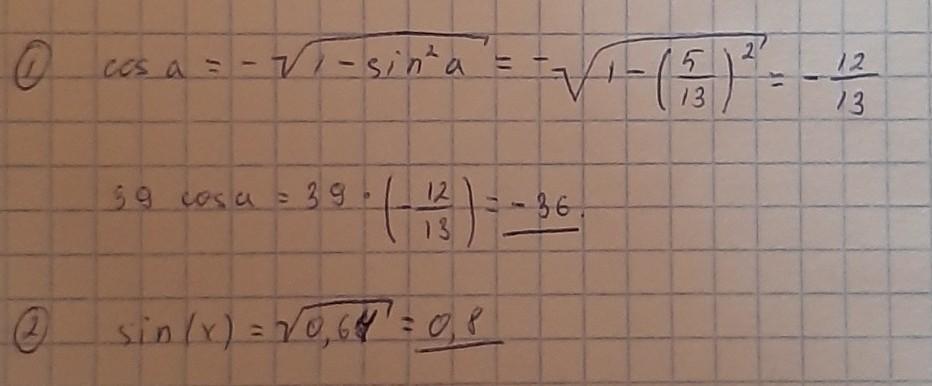 ① cos a = -√(1 - sin² a) = -√(1 - (5/13)²) = -12/13
39 cos a = 39 · (-12/13) = -36.
② sin(x) = √0,64 = 0,8